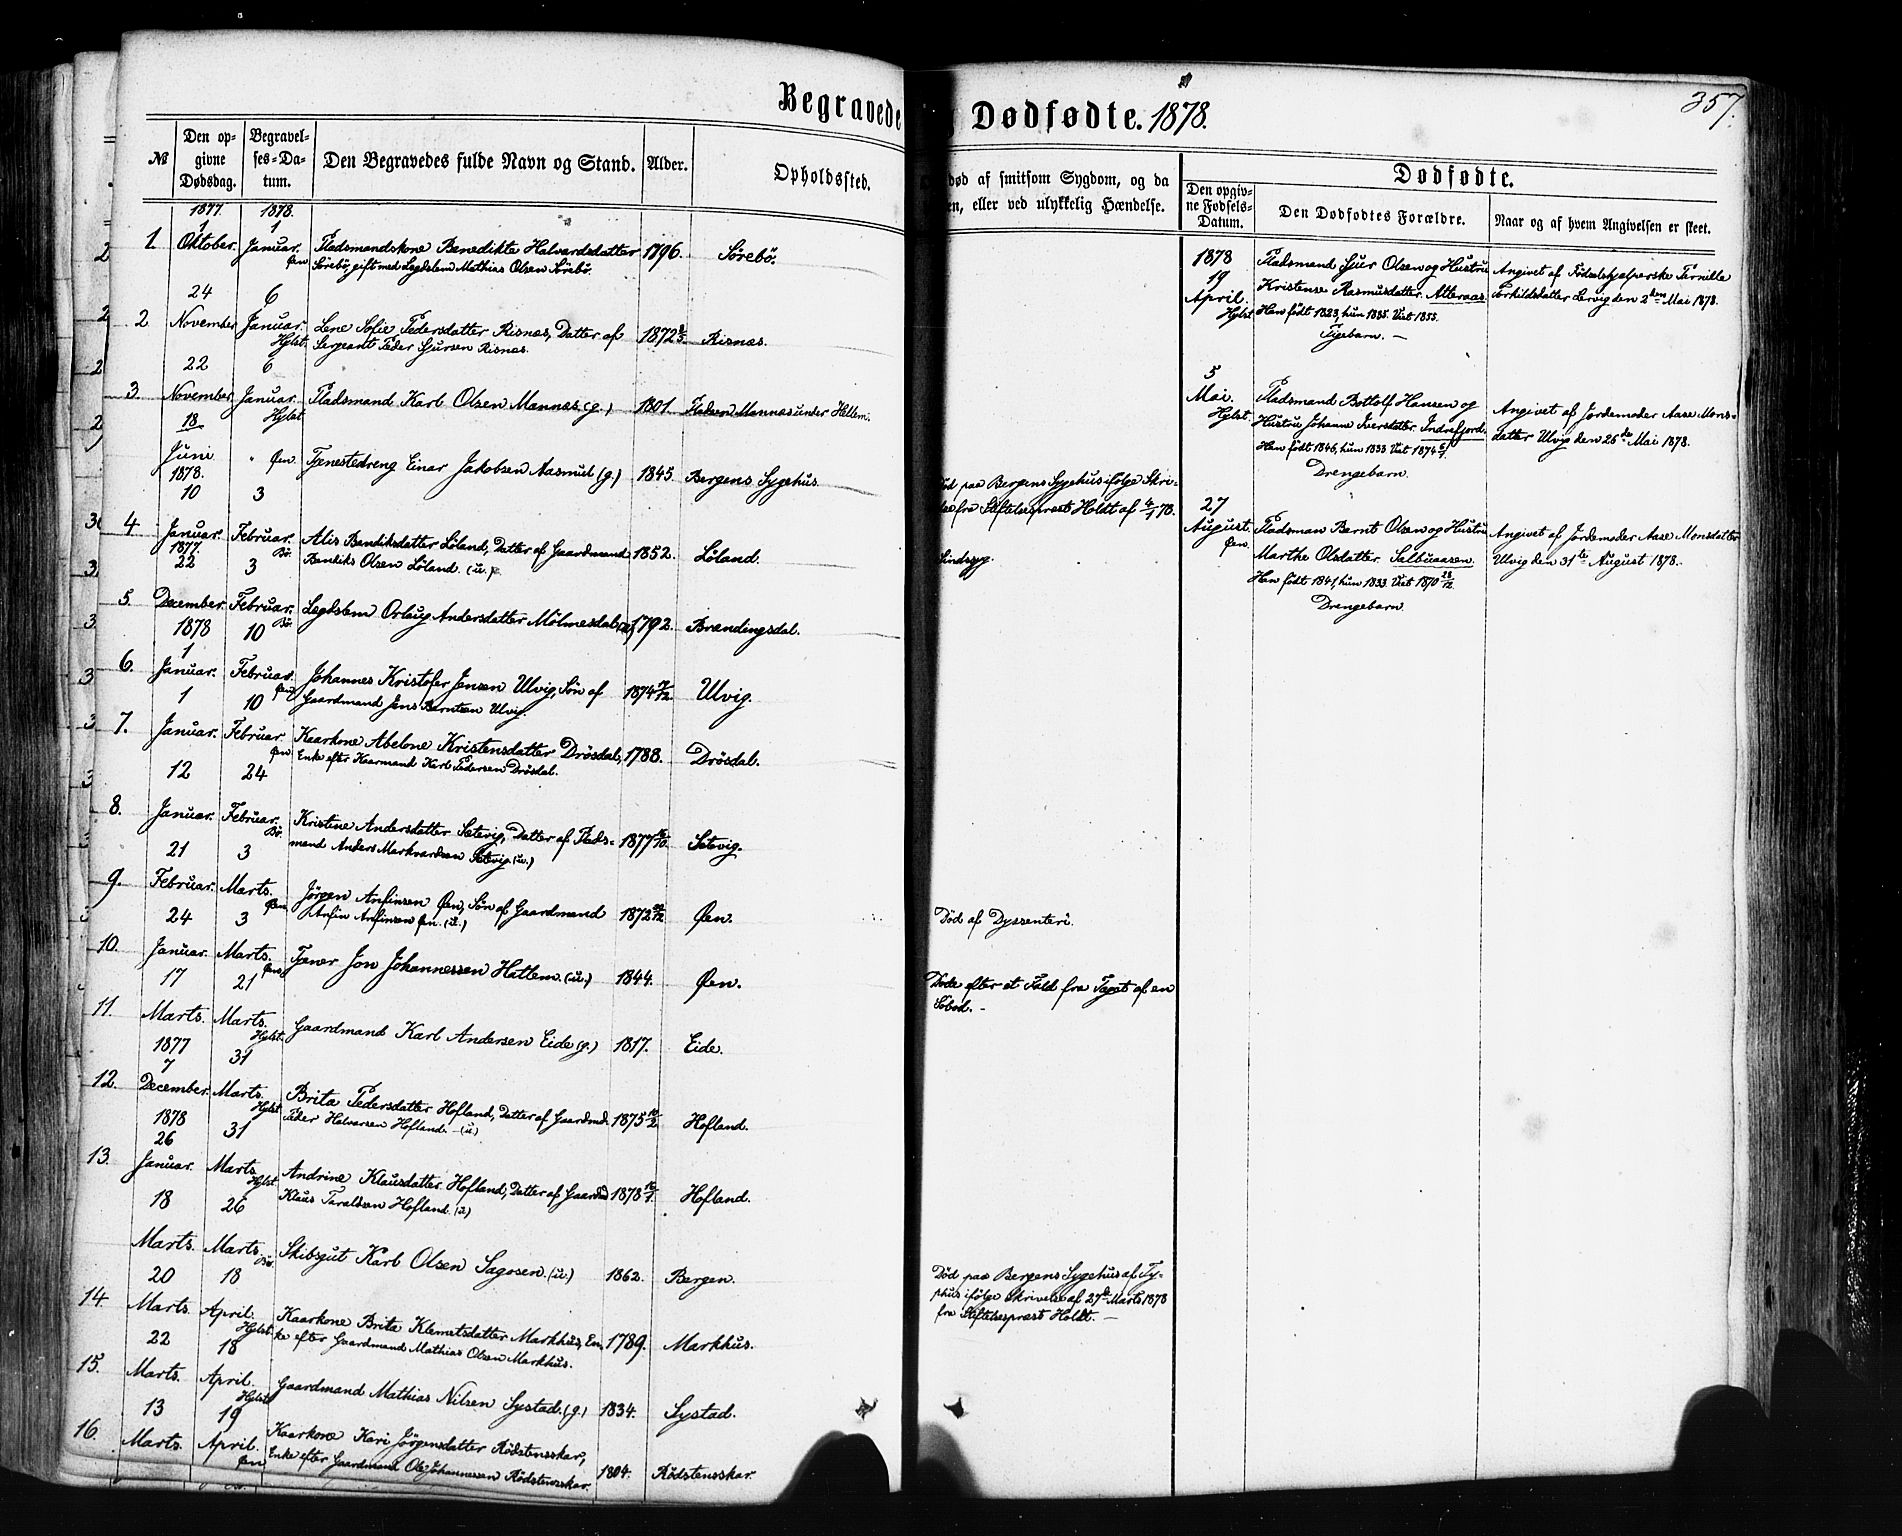 Begravede
Dødfødte. 1878.
357.
№
Den op-
givne
Dødsdag.
Begravel-
ses-Da-
tum.
Den Begravedes fulde Navn og Stand.
Alder.
Opholdssted.
død af smitsom Sygdom, og da
en, eller ved ulykkelig Hændelse.
Dødfødte.
Den opgiv-
ne Fødsels-
Datum.
Den Dødfødtes Forældre.
Naar og af hvem Angivelsen er skeet.
1877. 1878.
1 1
1 Oktober. Januar. Pladsmandskone Benedikte Halvardsdatter 1796. Sørebø.
Øen Sørebø, gift med Lægdslem Mathias Olsen Sørebø.
24 6
2 November Januar. Lene Sofie Pedersdatter Risnæs, Datter af 1872 Risnæs.
Hylst. Sergeant Peder Sjursen Risnæs.
22 6
3. November Januar. Pladsmand Karl Olsen Mannæs (g.) 1801. Pladsen Mannæs under Hellem.
18 Hylst.
Juni " Øen. Tjenestedreng Einar Jakobsen Aasmul (g.) 1845. Bergens Sygehus.
1878.
10 3
4 Januar. Februar. Alis Bendiksdatter Løland, Datter af Gaardmand 1852. Løland.
1877. Bø. Bendiks Olsen Løland. (u.)
22 3
5. December. Februar. Lægdslem Orlaug Andersdatter Mølmesdal 1792. Brændingsdal.
1878 10 Bø.
1
6. Januar. Februar. Johannes Kristofer Jensen Ulvig, Søn af 1874 Ulvig.
1 10 Øen Gaardmand Jens Berntsen Ulvig.
7. Januar. Februar. Kaarkone Abelone Kristensdatter Drøsdal, 1788. Drøsdal.
Øen Enke efter Kaarmand Karl Pedersen Drøsdal.
12 24
8. Januar. Februar. Kristine Andersdatter Sætevig, Datter af Plads- 1877 Sætevig.
Bø. mand Anders Markvardsen Sætevig. (u.)
21 3
9. Februar. Marts. Jørgen Anfinsen Øen, Søn af Gaardmand 1872 Øen.
24 3 Øen Anfin Anfinsen Øen. (u.)
10. Januar. Marts. Tjener Jon Johannessen Hatlem. (u.) 1844. Øen.
17 21 Øen
11. Marts. Marts. Gaardmand Karl Andersen Eide (g.) 1817. Eide.
1877 Hylst.
7 31
12. December. Marts. Brita Pedersdatter Hofland, Datter af Gaardmd. 1875 Hofland.
1878 Hylst. Peder Halvorsen Hofland. – (u.)
26 31
13. Januar. Marts. Andrine Klausdatter Hofland, Datter af Gaardmd 1878 Hofland.
Hylst. Klaus Taraldsen Hofland. (u)
18 26
Marts. Marts. Skibsgut Karl Olsen Sagosen. (u.) 1862. Bergen.
Bø.
20 18
14. Marts. April. Kaarkone Brita Klemetsdatter Markhus, En- 1789. Markhus.
Hylst. ke efter Gaardmand Mathias Olsen Markhus.
22 18
15. Marts. April. Gaardmand Mathias Nilsen Systad. (g.) 1834. Systad.
Hylst.
13 19
16. Marts. April. Kaarkone Kari Jørgensdatter Rødstensskar, 1804. Rødstensskar.
Øen Enke efter Gaardmand Ole Johannessen Rødstensskar.
Død paa Bergens Sygehus ifølge Skri-
fra Stiftelsespræst Holdt af 78.
Sindssyg.
Død af Dyssenteri.
Døde efter et Fald fra Taget af en
Søbod. –
Død paa Bergens Sygehus af Ty-
phus ifølge Skrivelse af 27de Marts 1878
fra Stiftelsespræst Holdt. –
1878 Pladsmand Sjur Olsen og Hustru Angivet af Fødselshjælperske Pernille
19 Kristense Rasmusdatter Atteraas. Torkildsdatter Lervig den 2den Mai 1878.
April. Han født 1823, hun 1835. Viet 1855.
Hylst. Pigebarn. –
5
Mai. Pladsmand Bottolf Hansen og Angivet af Jordemoder Aase Mons-
Hylst. Hustru Johanne Iversdatter Indrefjord. datter Ulvig den 25de Mai 1878.
Han født 1846, hun 1833 Viet 1874
Drengebarn.
27
August. Pladsman Bernt Olsen og Hustru Angivet af Jordemoder Aase Monsdatter
Øen. Marthe Olsdatter Salbuaasen. Ulvig den 31te August 1878.
Han født 1841, hun 1833. Viet 1870 28/12.
Drengebarn.